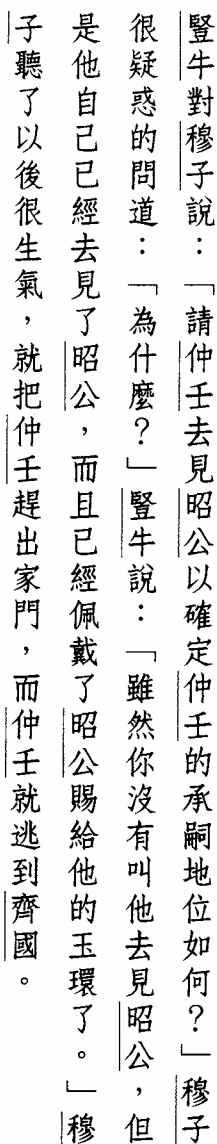 豎牛對穆子說：「請仲壬去見昭公以確定仲壬的承嗣地位如何？」穆子
很疑惑的問道：「為什麼？」豎牛說：「雖然你沒有叫他去見昭公，但
是他自己已經去見了昭公，而且已經佩戴了昭公賜給他的玉環了。」穆
子聽了以後很生氣，就把仲壬趕出家門，而仲壬就逃到齊國。